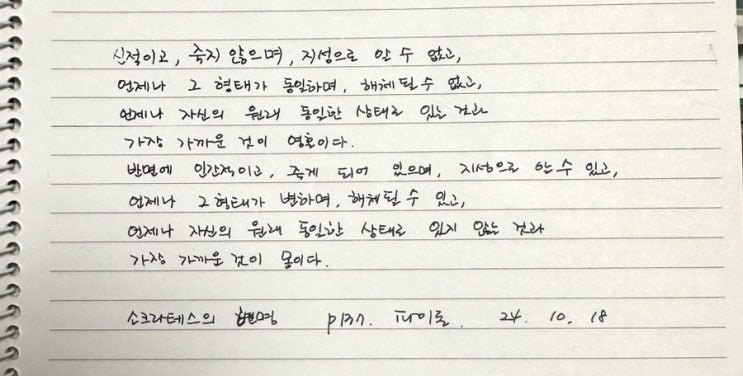 신적이고, 죽지 않으며, 지성으로 알 수 없고,
언제나 그 형태가 동일하며, 해체될 수 없고,
언제나 자신의 원래 동일한 상태로 있는 것과
가장 가까운 것이 영혼이다.
반면에 인간적이고, 죽게 되어 있으며, 지성으로 알 수 있고,
언제나 그 형태가 변하며, 해체될 수 있고,
언제나 자신의 원래 동일한 상태로 있지 않는 것과
가장 가까운 것이 몸이다.
소크라테스의 변명 p137. 파이돈. 24. 10. 18